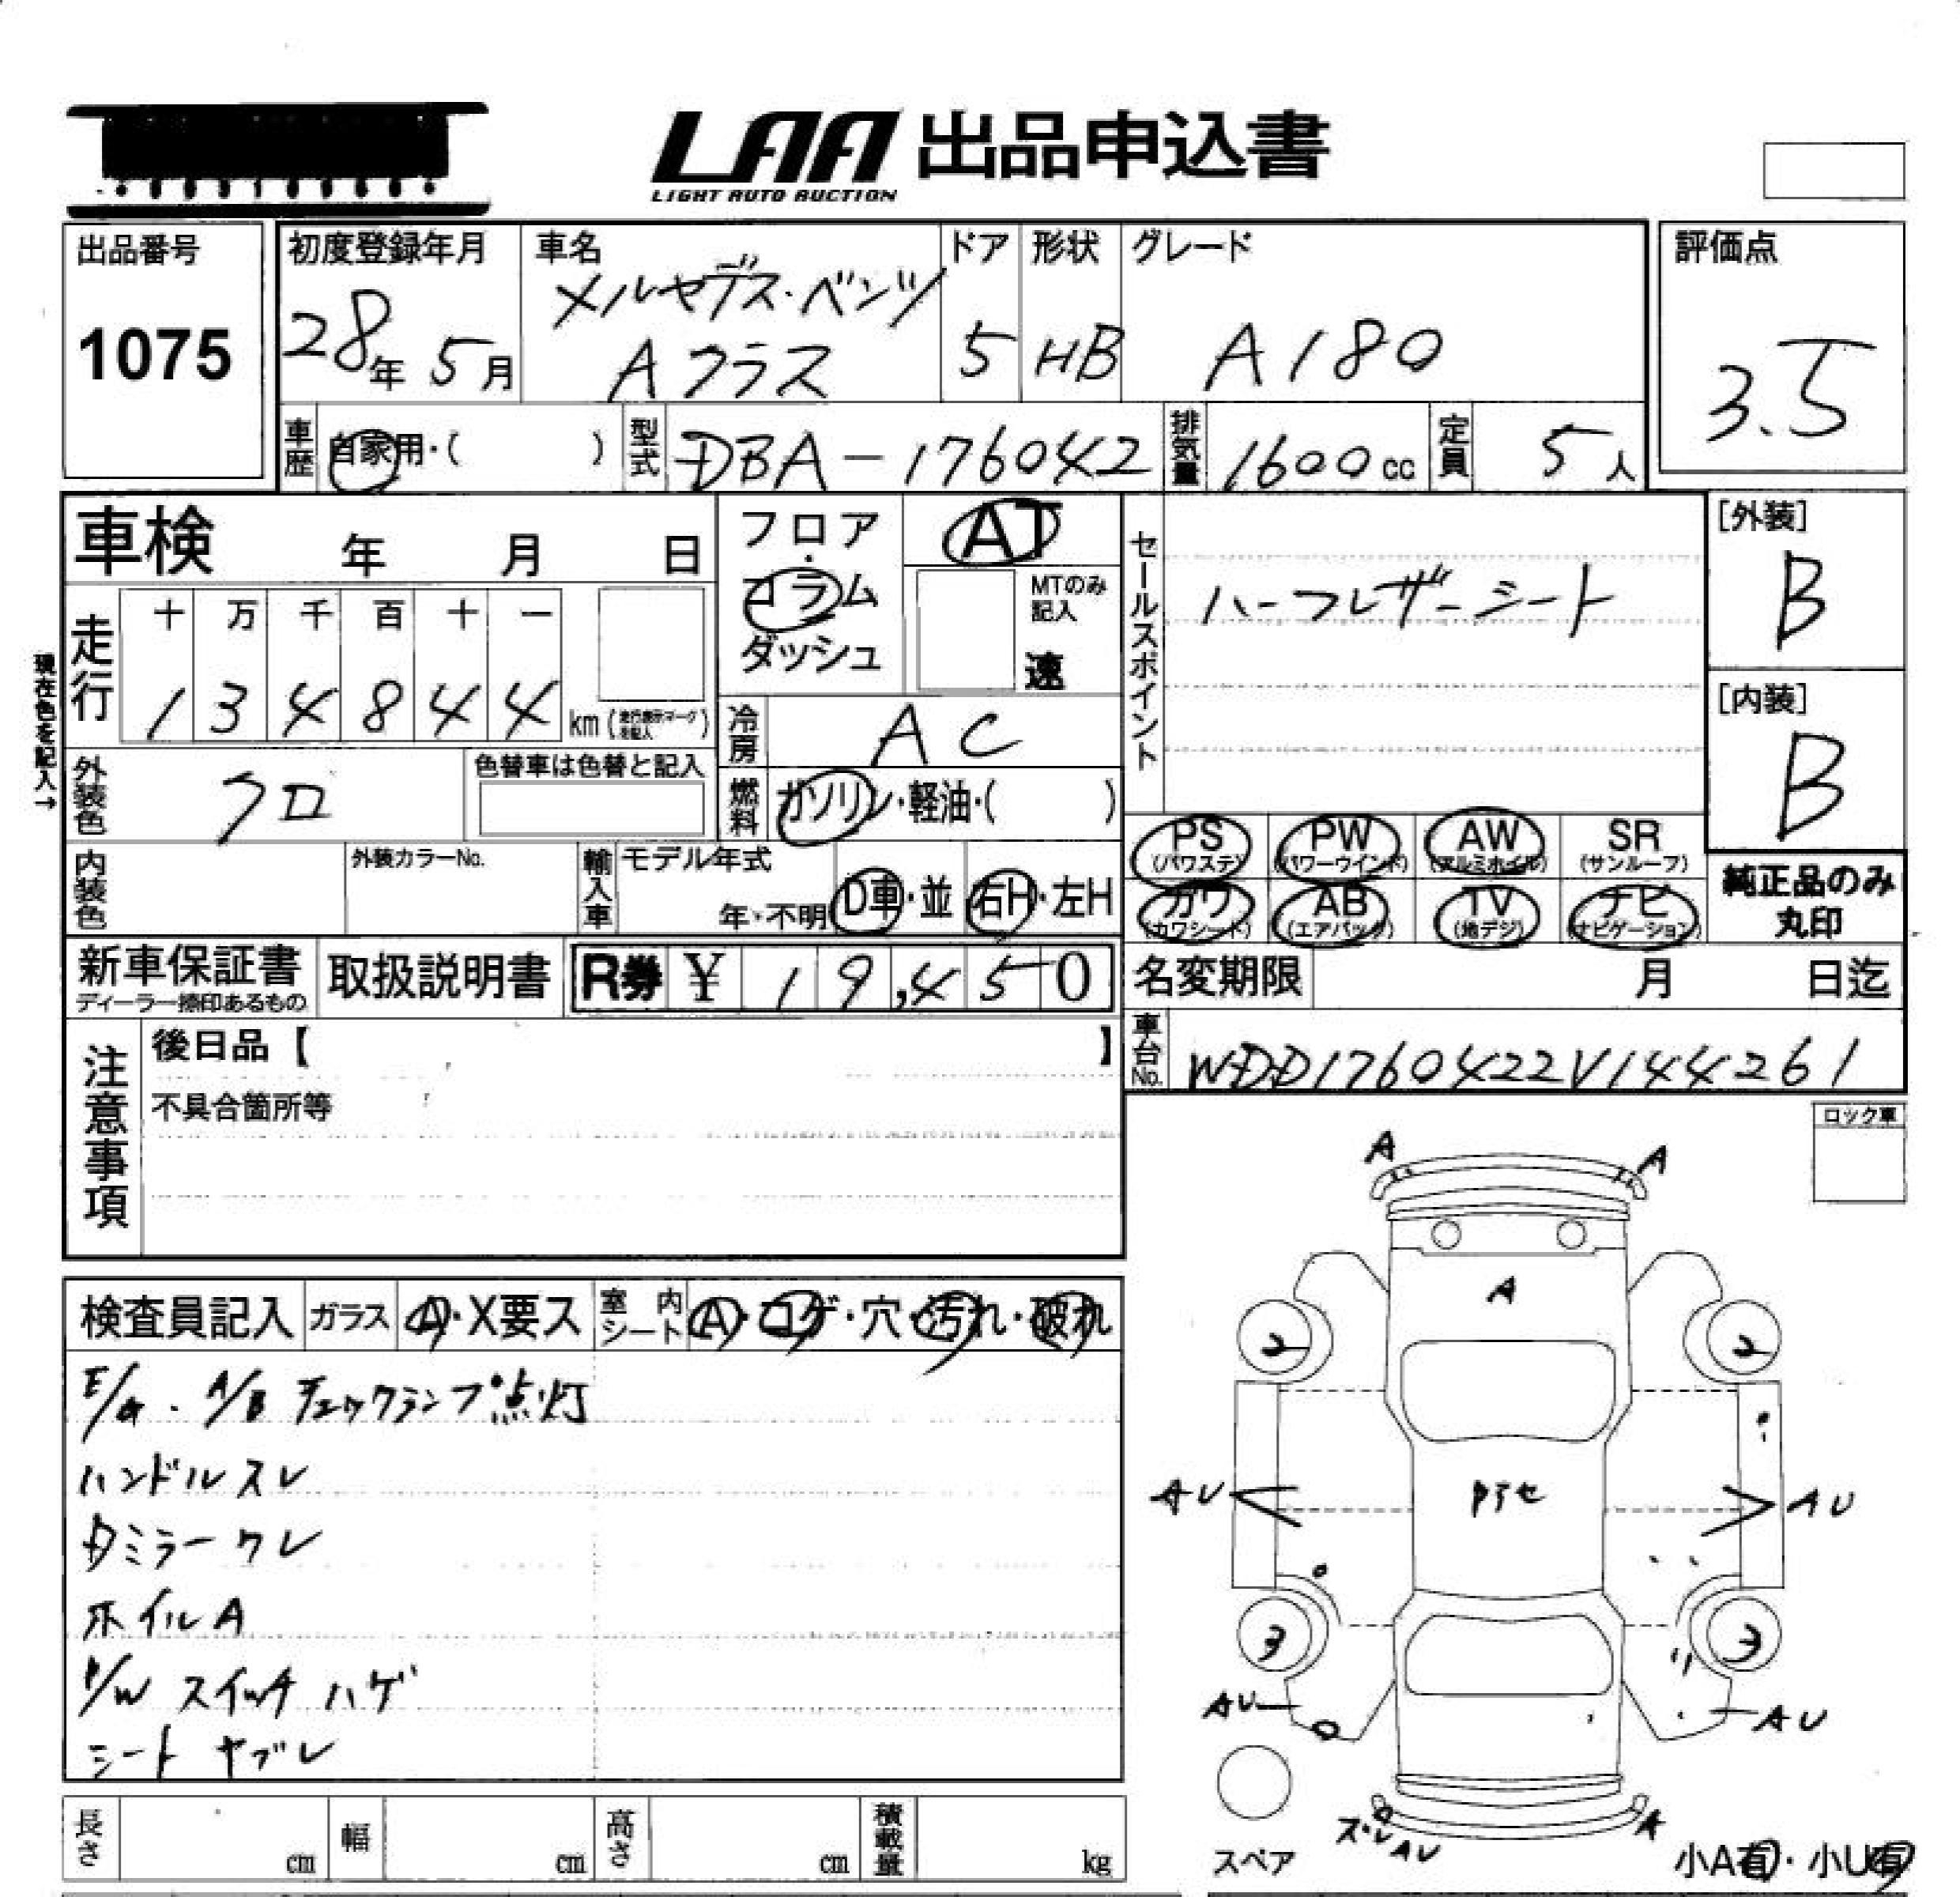 LAA 出品申込書
LIGHT AUTO AUCTION
出品番号
1075
初度登録年月
28年 5月
車名
メルセデス・ベンツ
Aクラス
ドア
5
形状
HB
グレード
A180
評価点
3.5
車歴 自家用・( )
型式 DBA-176042
排気量 1600cc
定員 5人
車検 年 月 日
フロア・コラム ダッシュ
AT
MTのみ記入
速
セールスポイント
ハーフレザーシート
[外装]
B
[内装]
B
現在色を記入→
走行
十 万 千 百 十 一
1 3 4 8 4 4 km (走行表示マークを記入)
冷房 AC
外装色 クロ
色替車は色替と記入
燃料 ガソリン・軽油・( )
内装色
外装カラーNo.
輸入車
モデル年式
年・不明
D車・並
右H・左H
PS (パワステ)
PW (パワーウインド)
AW (アルミホイル)
SR (サンルーフ)
カワ (カワシート)
AB (エアバッグ)
TV (地デジ)
ナビ (ナビゲーション)
純正品のみ丸印
新車保証書
ディーラー捺印あるもの
取扱説明書
R券 ¥ 19,450
名変期限 月 日迄
車台No. WDD1760422V144261
注意事項
後日品【 】
不具合箇所等
ロック車
検査員記入
ガラス A・X要ス
室内シート A・コゲ・穴・汚れ・破れ
E/G・A/B チェックランプ点灯
ハンドルスレ
ホイルA
P/W スイッチ ハゲ
シート ヤブレ
A A
A
2 2
AU AU
3 3
AU AU
AU A
スペア
小A有・小U有
長さ cm
幅 cm
高さ cm
積載量 kg